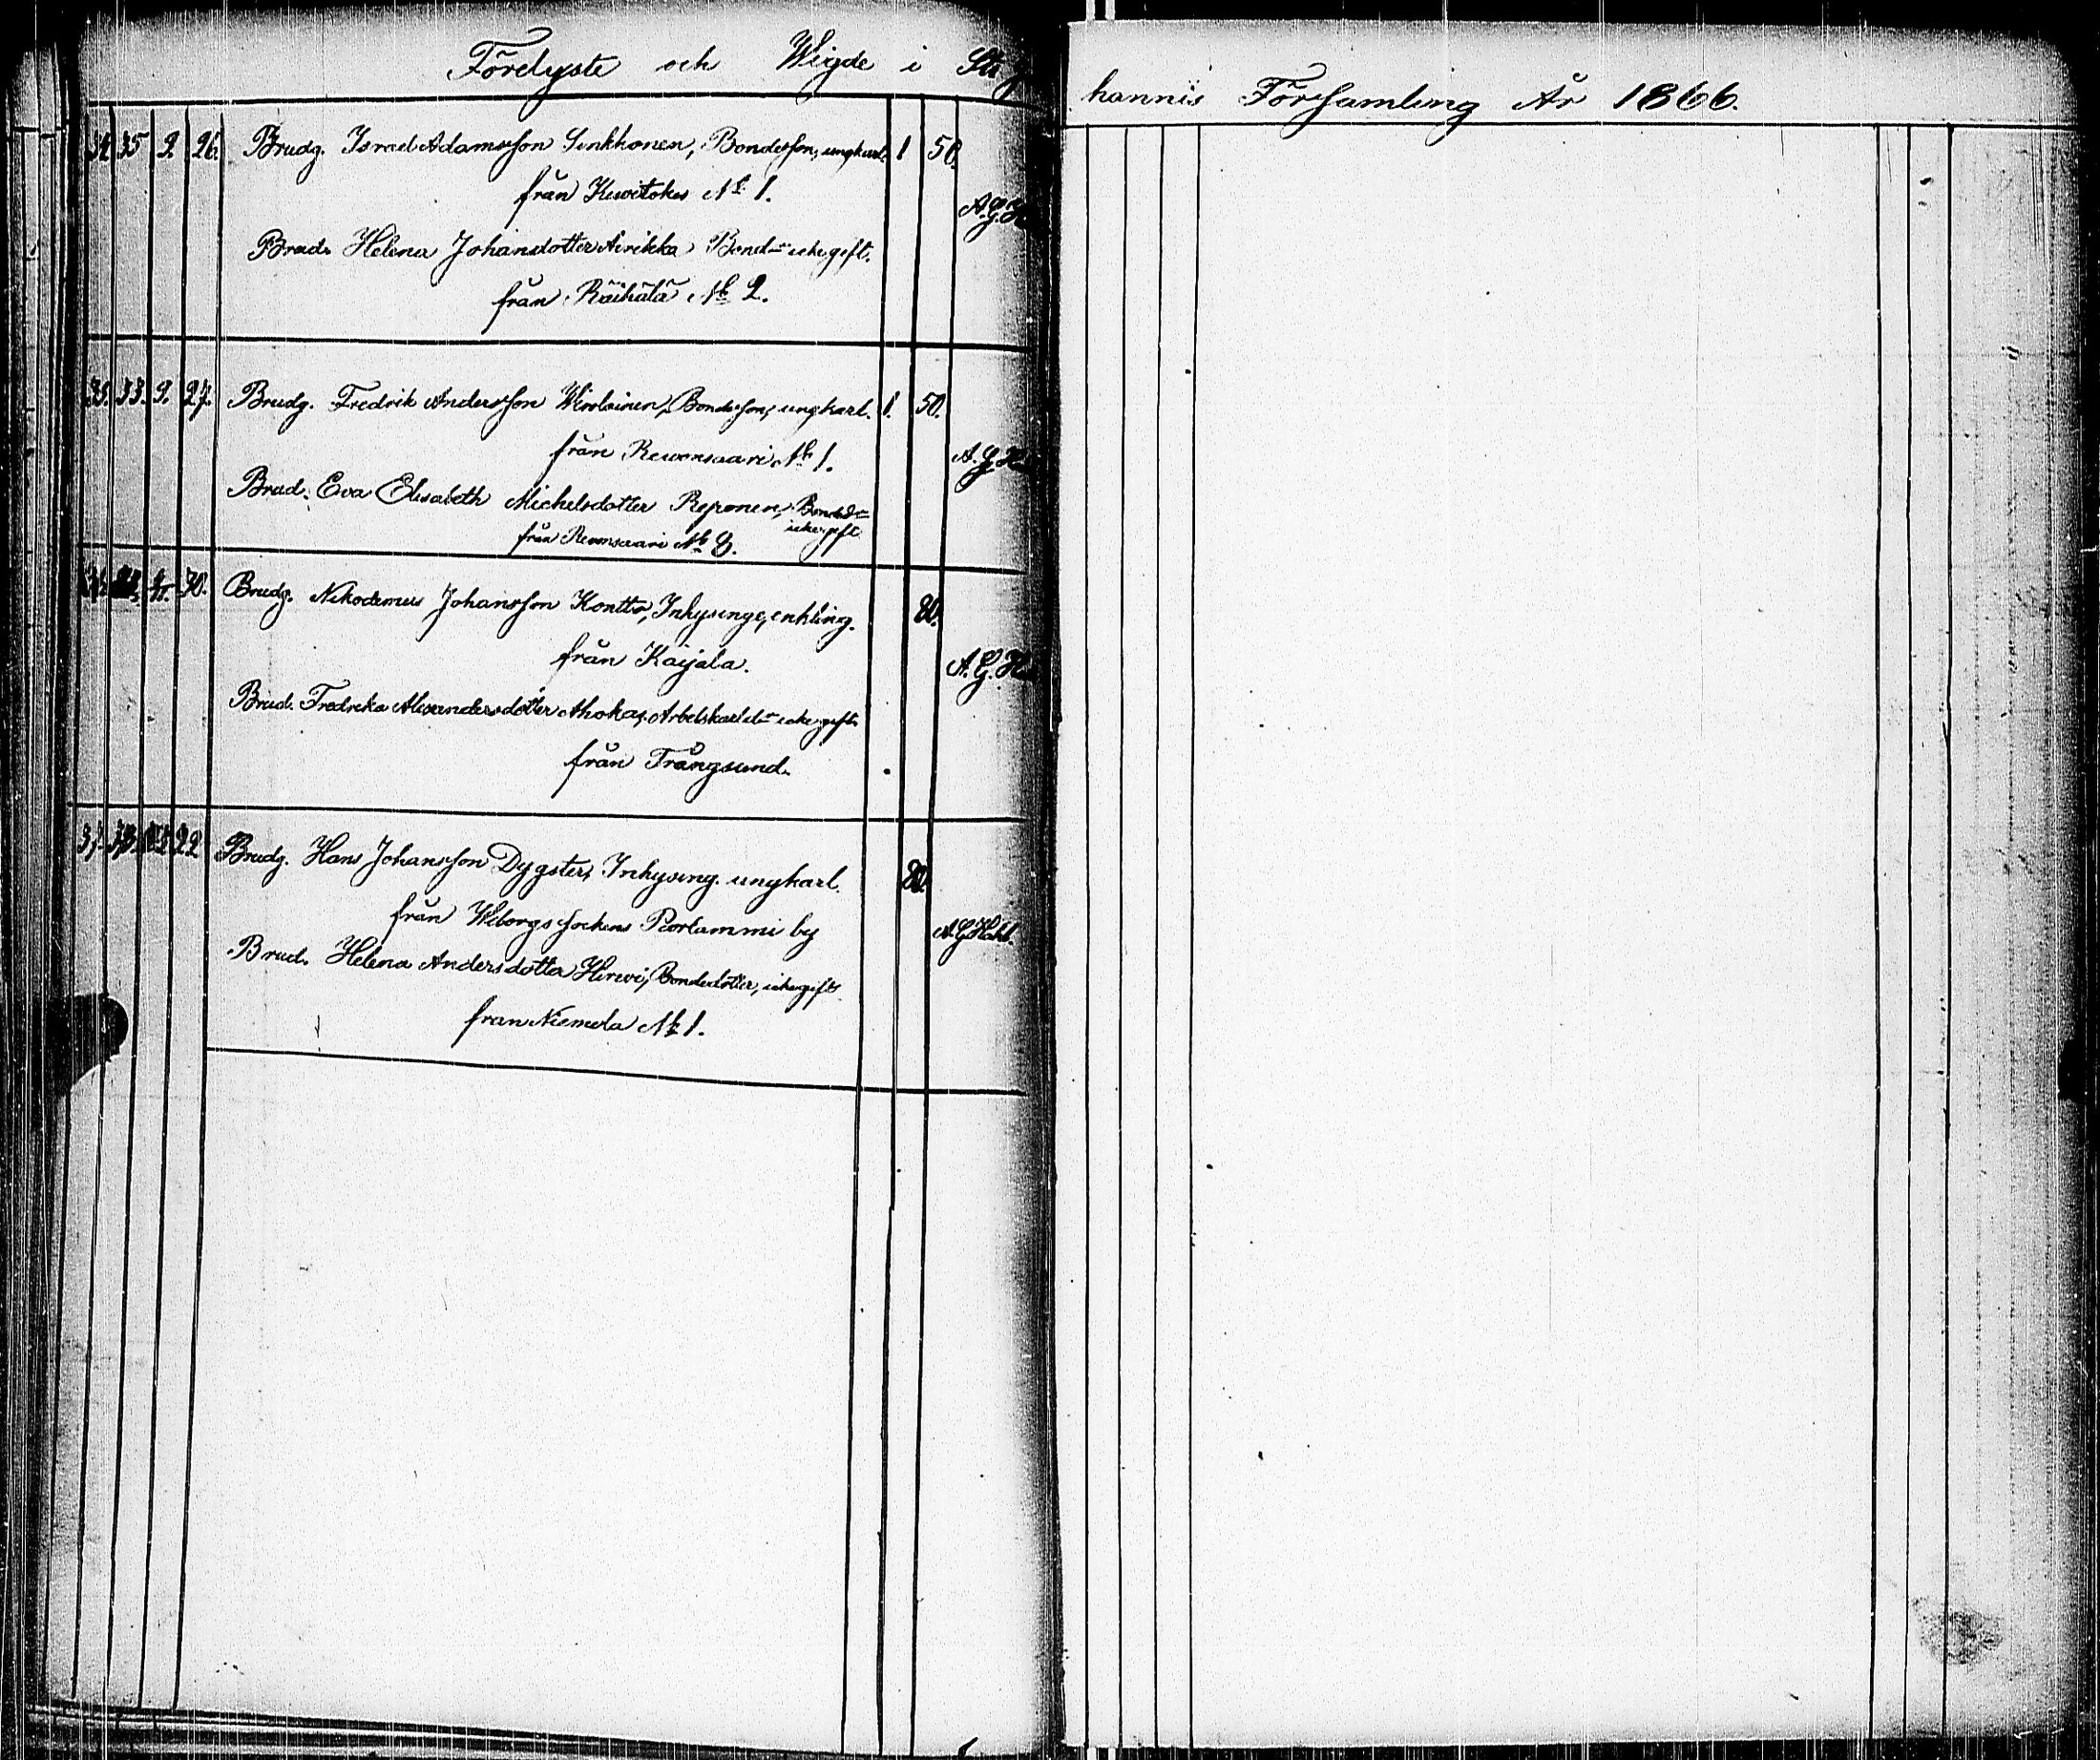 Förelyste och Wigde i Sti J
hannis Församling År 1866.
34. 35 9 26. Brudg. Israel Adamsson Sinkkonen, Bondesson, ungkarl. 1 50.
från Kuwitokes No 1. A. G. H
Brud. Helena Johansdotter Airikka Bonded:r icke gift.
från Räihälä No 2.
35. 33. 9. 27. Brudg. Fredrik Andersson Wirolainen, Bondesson, ungkarl. 1. 50.
från Rewonsaari No 1. A. G. H
Brud. Eva Elisabeth Michelsdotter Reponen, Bonded:r
icke gift
från Rewonsaari No 8.
30. Brudg. Nikodemus Johansson Kontto, Inhysinge, enkling. 80.
från Kaijala. A. G. H
Brud. Fredrika Alexandersdotter Ahokas, Arbetskarld:r icke gift.
från Trångsund.
37. 22 Brudg. Hans Johansson Dygster, Inhysing. ungkarl. 80.
från Wiborgs sockens Porlammi by A. G. Hahl.
Brud. Helena Andersdotter Hirwi, Bondedotter, icke gift
från Niemela No 1.